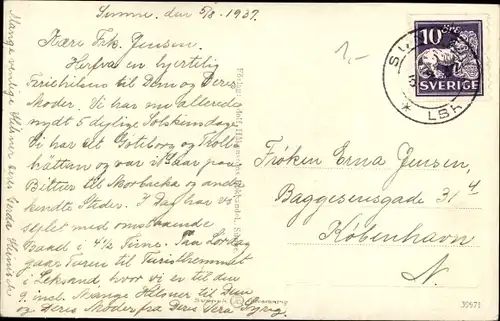 Sunne, den 5/8. 1937.
Kære Frk. Jensen.
Herfra en hjertelig
Feriehilsen til Dem og Deres
Moder. Vi har nu allerede
nydt 5 dejlige Solskinsdage.
Vi har set Göteborg og Troll-
hättan og var i Gaar paa
Biltur til Morbacka og andre
kendte Steder. I Dag har vi
sejlet med omstaaende
Baad i 4½ Time. Paa Lørdag
gaar Turen til Turisthemmet
i Leksand, hvor vi er til den
9. incl. Mange Hilsner til Dem
og Deres Moder fra Deres
Mange venlige Hilsner Deres Gerda
1,-
10 ÖRE
SVERIGE
LBH
Frøken Erna Jensen,
Baggesensgade 31 4
København
N.
35971